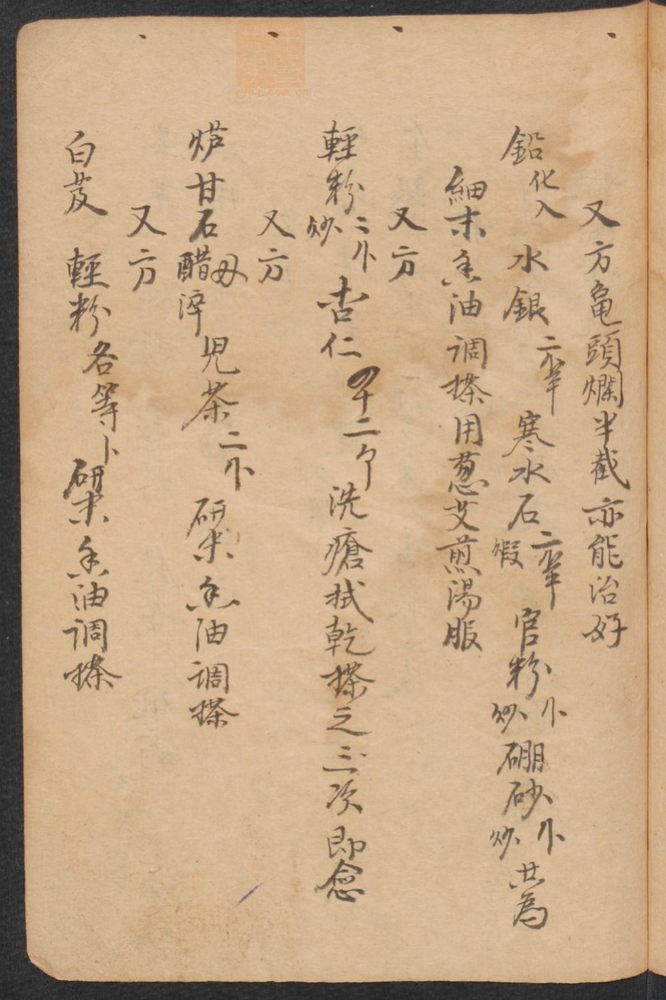 又方亀頭爛半截亦能治好
鉛化入 水銀 寒水石煅 官粉炒 硼砂炒 共為
細末香油调搽用葱艾煎湯服
又方
輕粉炒 杏仁 十二个 洗瘡拭乾搽之三次即愈
又方
炉甘石醋淬 児茶二 研末香油调搽
又方
白芨 輕粉各等 研末香油调搽